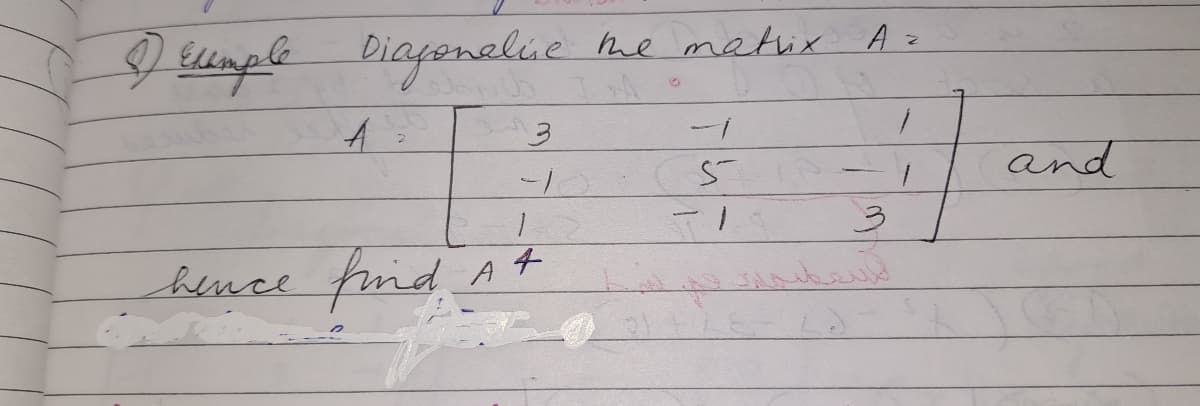 Q) Example Diagonalise the matrix A =
A = [ 3 -1 1
-1 5 -1
1 -1 3 ] and
hence find A⁴